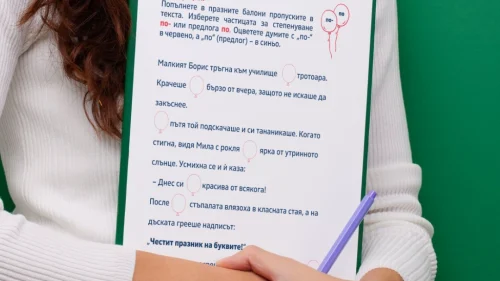 Попълнете в празните балони пропуските в
текста. Изберете частицата за степенуване
по- или предлога по. Оцветете думите с „по-“
в червено, а „по“ (предлог) – в синьо.
по-
по
Малкият Борис тръгна към училище тротоара.
Крачеше бързо от вчера, защото не искаше да
закъснее.
пътя той подскачаше и си тананикаше. Когато
стигна, видя Мила с рокля ярка от утринното
слънце. Усмихна се и ѝ каза:
– Днес си красива от всякога!
После стъпалата влязоха в класната стая, а на
дъската грееше надписът:
„Честит празник на буквите!“